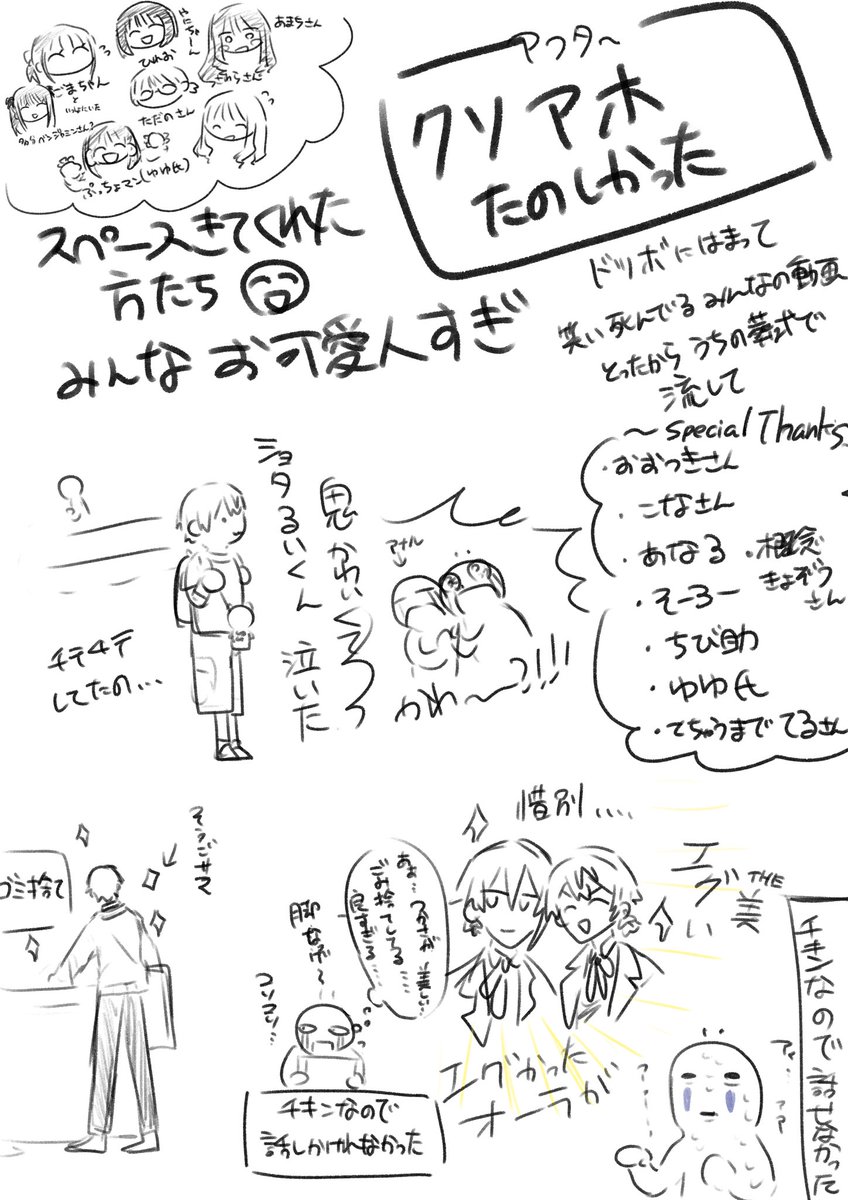 あまちさん
やにちゃーん
ひれお
ごまちゃん
といっしょにいた
ただのさん
ぷっちょマン(ゆゆ氏)
アフター
クソアホ
たのしかった
スペースきてくれた
方たち
みんな お可愛人すぎ
ドツボにはまって
笑い死んでる みんなの動画
とったから うちの葬式で
流して
～special Thanks
・おおつきさん
・こなさん
・あなる
・概念
きょぞうさん
・そーろー
・ちび助
・ゆゆ氏
・てちゅうまで てるさん
ショタるいくん
思かわいくて
泣いた
チテチテ
してたの…
アナル
かわ～～?!!!
惜別....
エグい
THE
美
エグかった
オーラが
チキンなので話せなかった
ア…
ゴミ捨て
あぁ…つかさが美しい…
ごみ捨てしてる……
良すぎる
脚なげ～
コソコソ…
チキンなので
話しかけれなかった